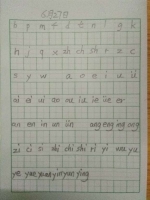 b p m f d t n l g k
h j q x zh ch sh r z c
s y w a o e i u ü
ai ei ui ao ou iu ie üe er
an en in un ün ang eng ing ong
zi ci si zhi chi shi ri yi wu yu
ye yue yuan yin yun ying